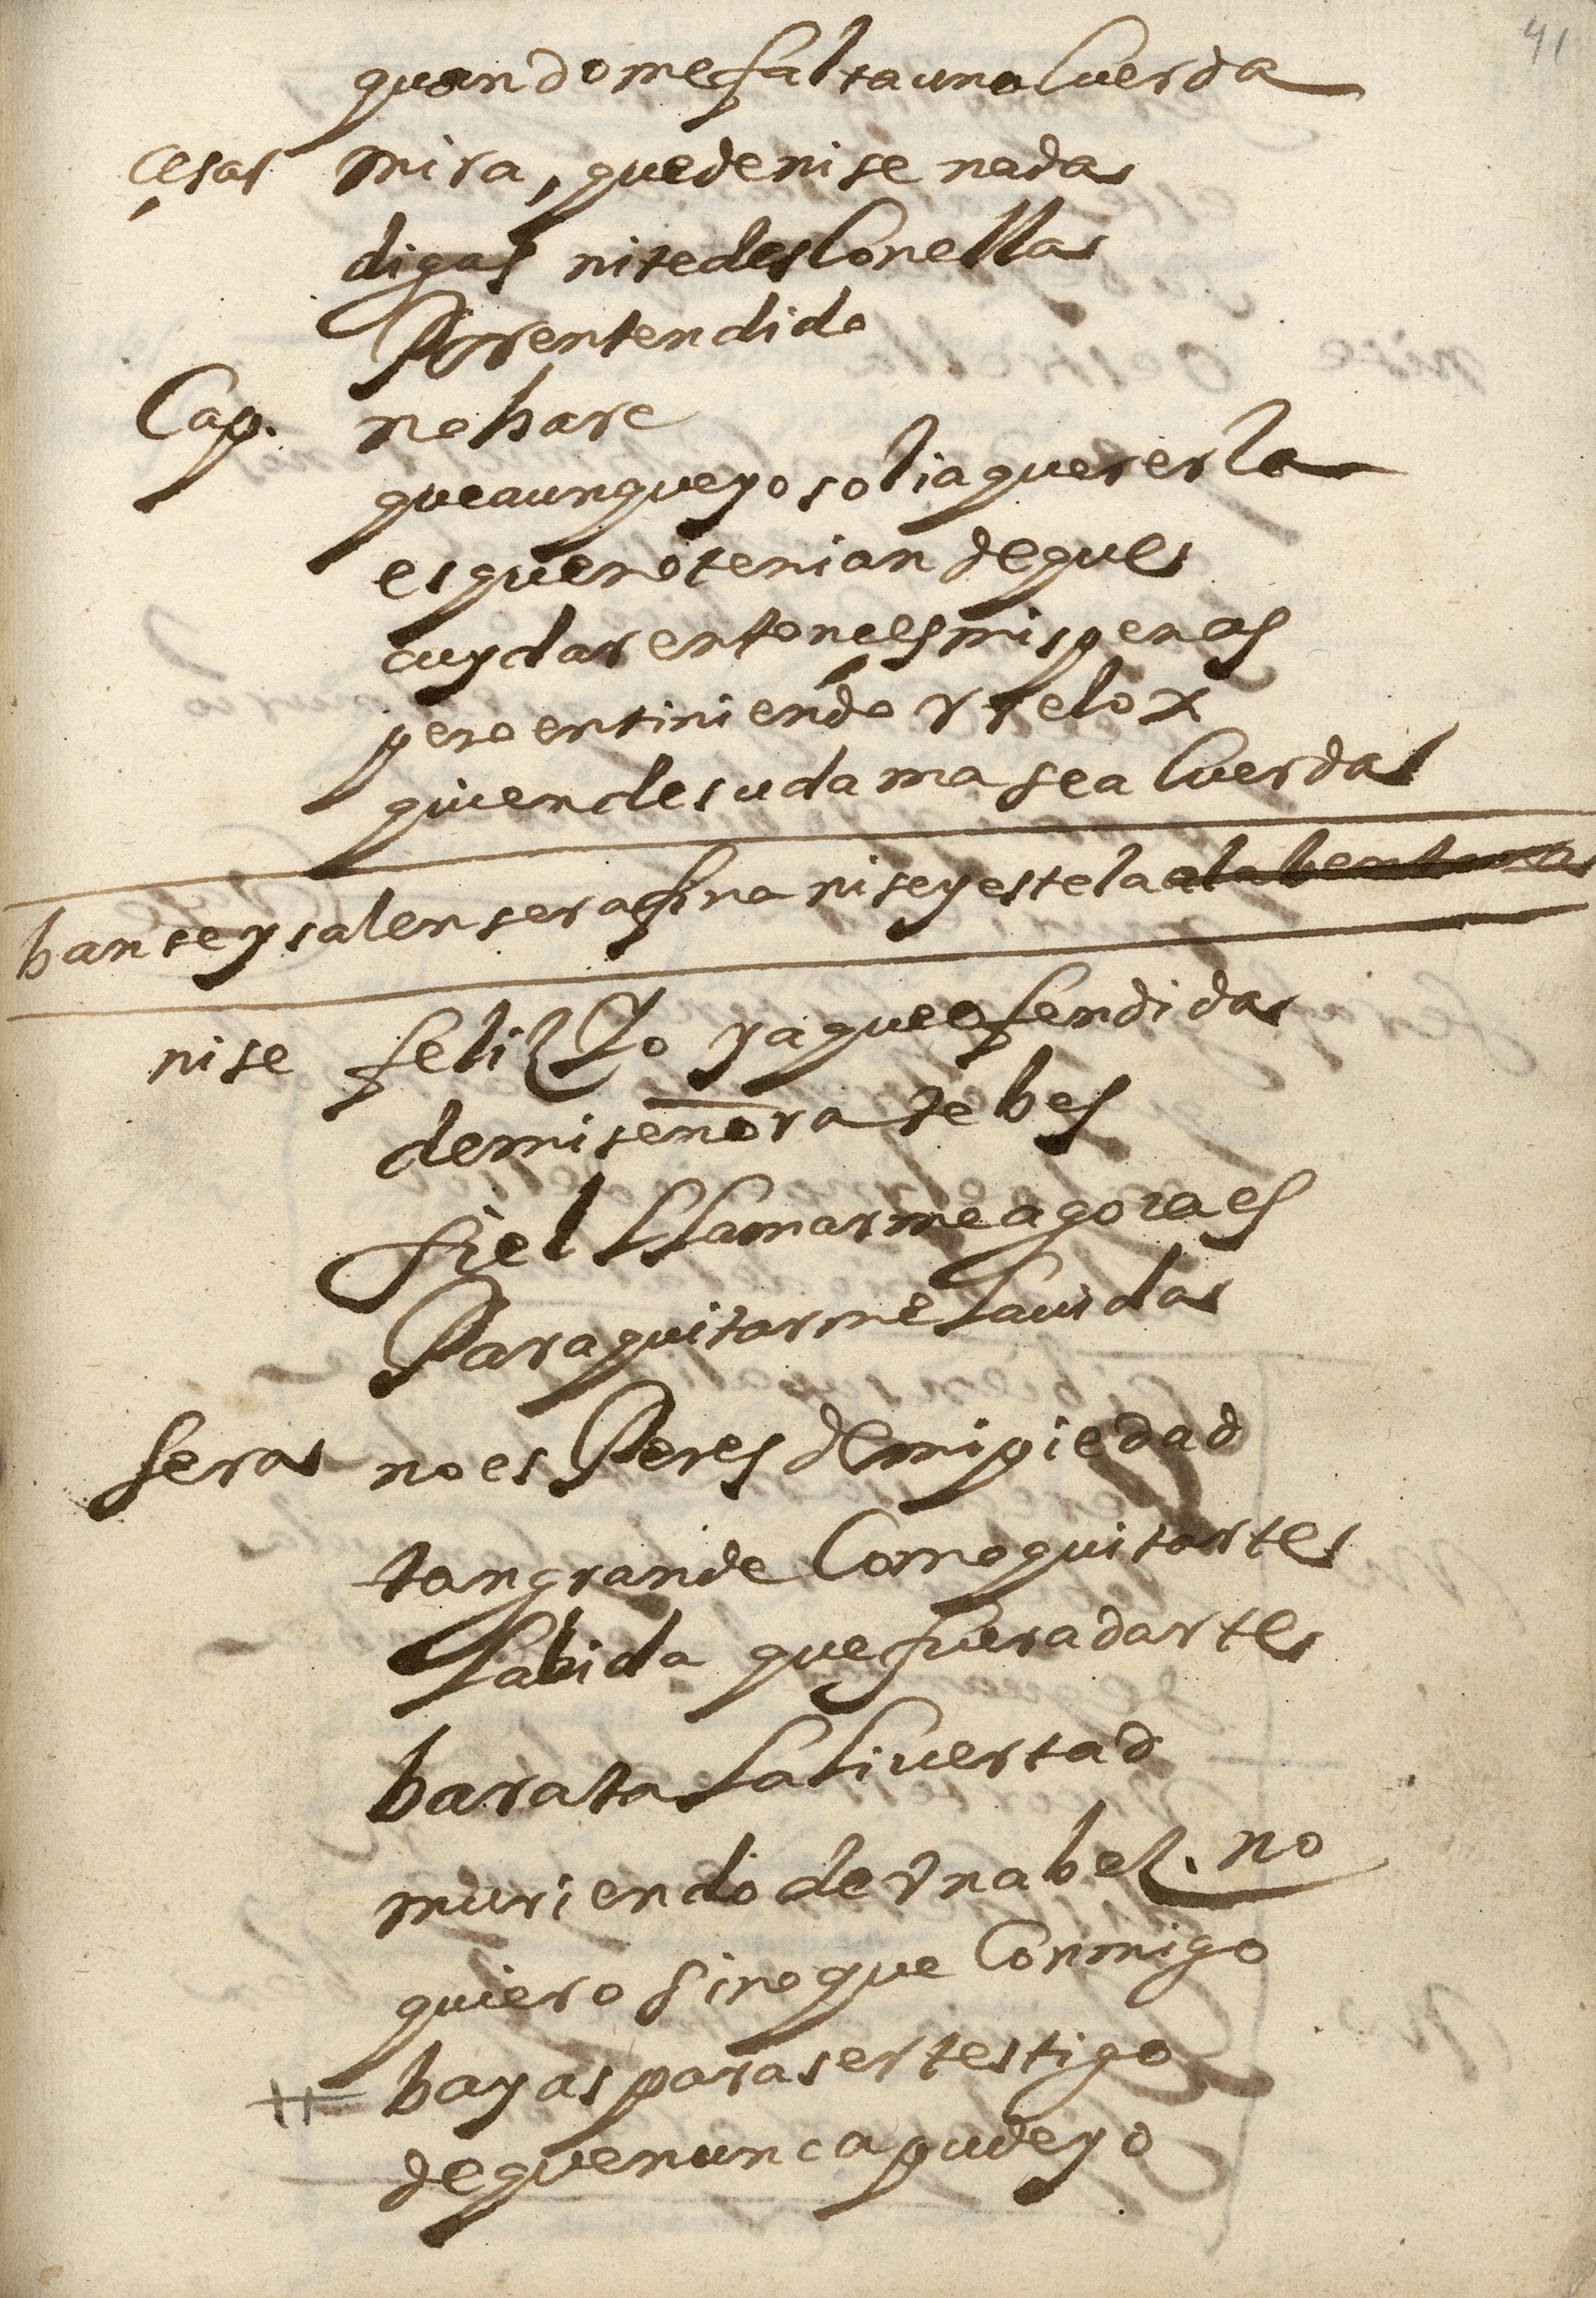 41
quando me falta una Cuerda
çesar mira, que de nise nada
digas ni te des Con ella
Por entendido
Cap. no hare
que aunque yo solia quererla
es que no tenian de que
cuydar entonces mis penas
pero en tiniendo rrelox
quien de su dama se aCuerda
banse y salen serafina nise y estela a la bentana
nise feliz So ya que ofendida
de mi señora te bes
fiel LLamarme agora es
Para quitarme La vida
sera no esPeres de mi piedad
tan grande Como quitarte
La bida que fuera darte
barata La Livertad
muriendo de Vna bez. no
quiero sino que Conmigo
bayas para ser testigo
de que nunca pude yo